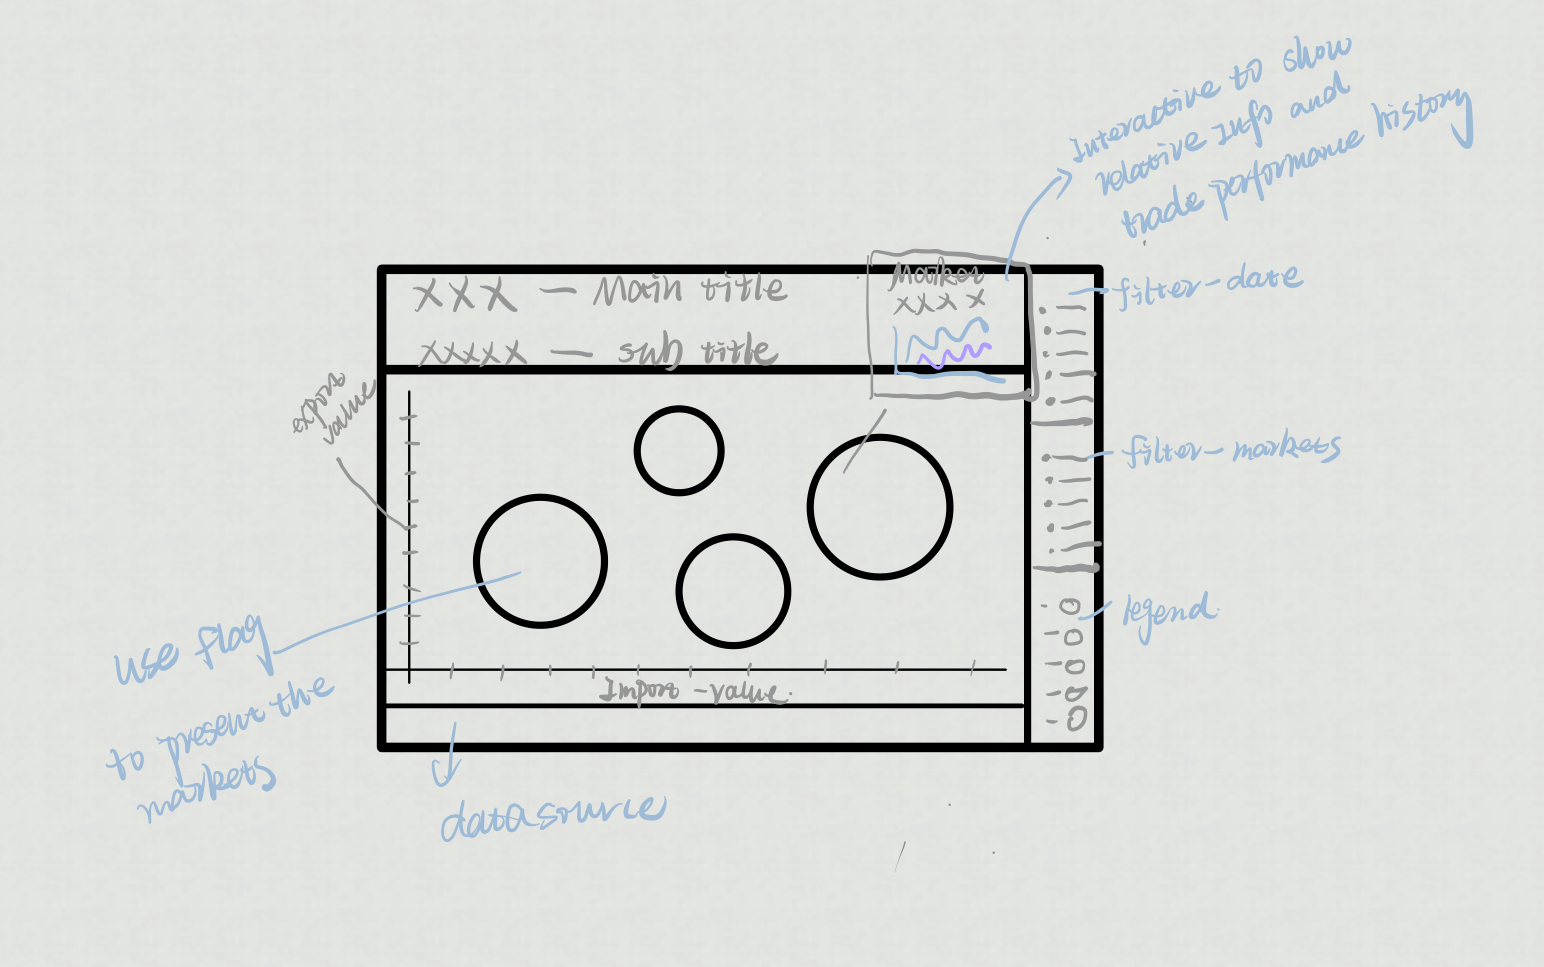 Interactive to show
relative Info and
trade performance history
XXX — Main title
XXXXX — sub title
Market
XXXX
filter-date
export
value
filter-markets
use flag
to present the
markets
legend
Import-value
datasource